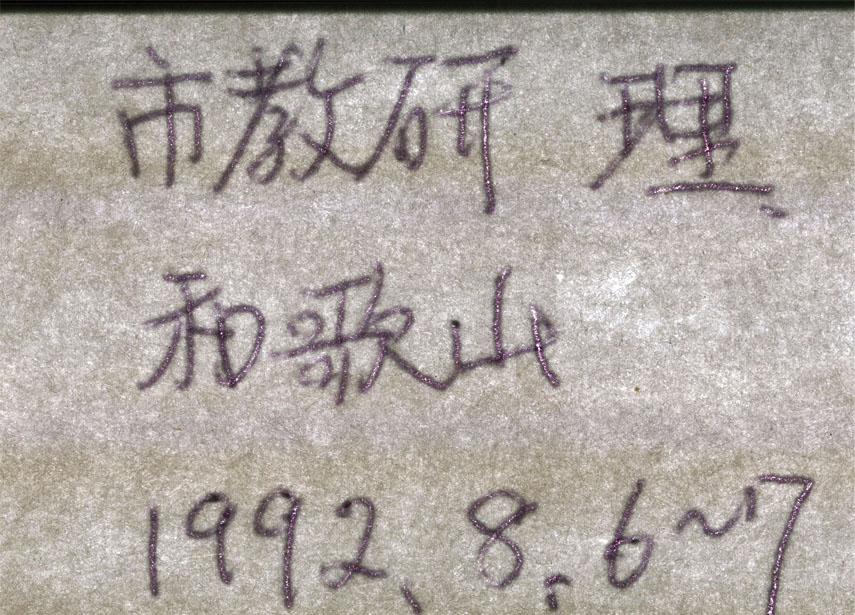 市教研 理
和歌山
1992.8.6~7